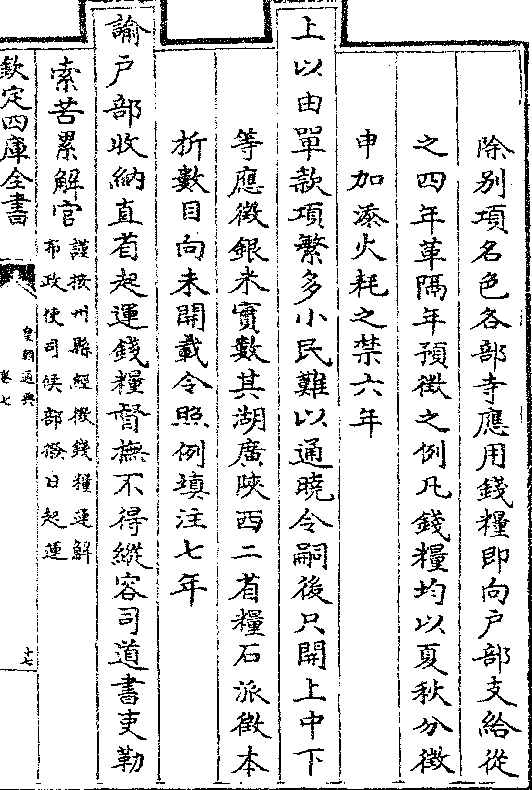 除别項名色各部寺應用錢糧即向户部支給從
之四年革隔年預徵之例凡錢糧均以夏秋分徵
申加添火耗之禁六年
上以由單款項繁多小民難以通曉令嗣後只開上中下
等應徵銀米實數其湖廣陜西二省糧石派徵本
折數目向未開載令照例填注七年
諭户部收納直省起運錢糧督撫不得縱容司道書吏勒
索苦累解官
謹按州縣經徵錢糧運解
布政使司候部撥日起運
欽定四庫全書
皇朝通典
卷七
十七